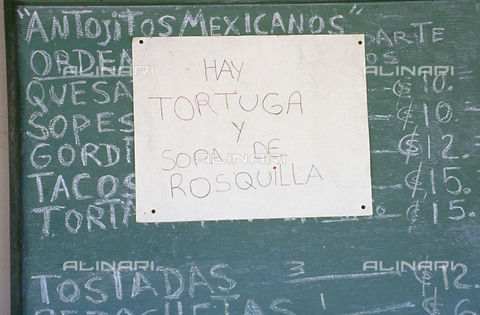 "ANTOJITOS MEXICANOS"
ORDEN
QUESA ₡10.
SOPES ₡10.
GORDI ₡12.
TACOS ₡15.
TORT ₡15.
HAY
TORTUGA
Y
SOPA DE
ROSQUILLA
TOSTADAS 3 ₡12.
ALINARI
ALINARI
ALINARI
ALINARI
ALINARI